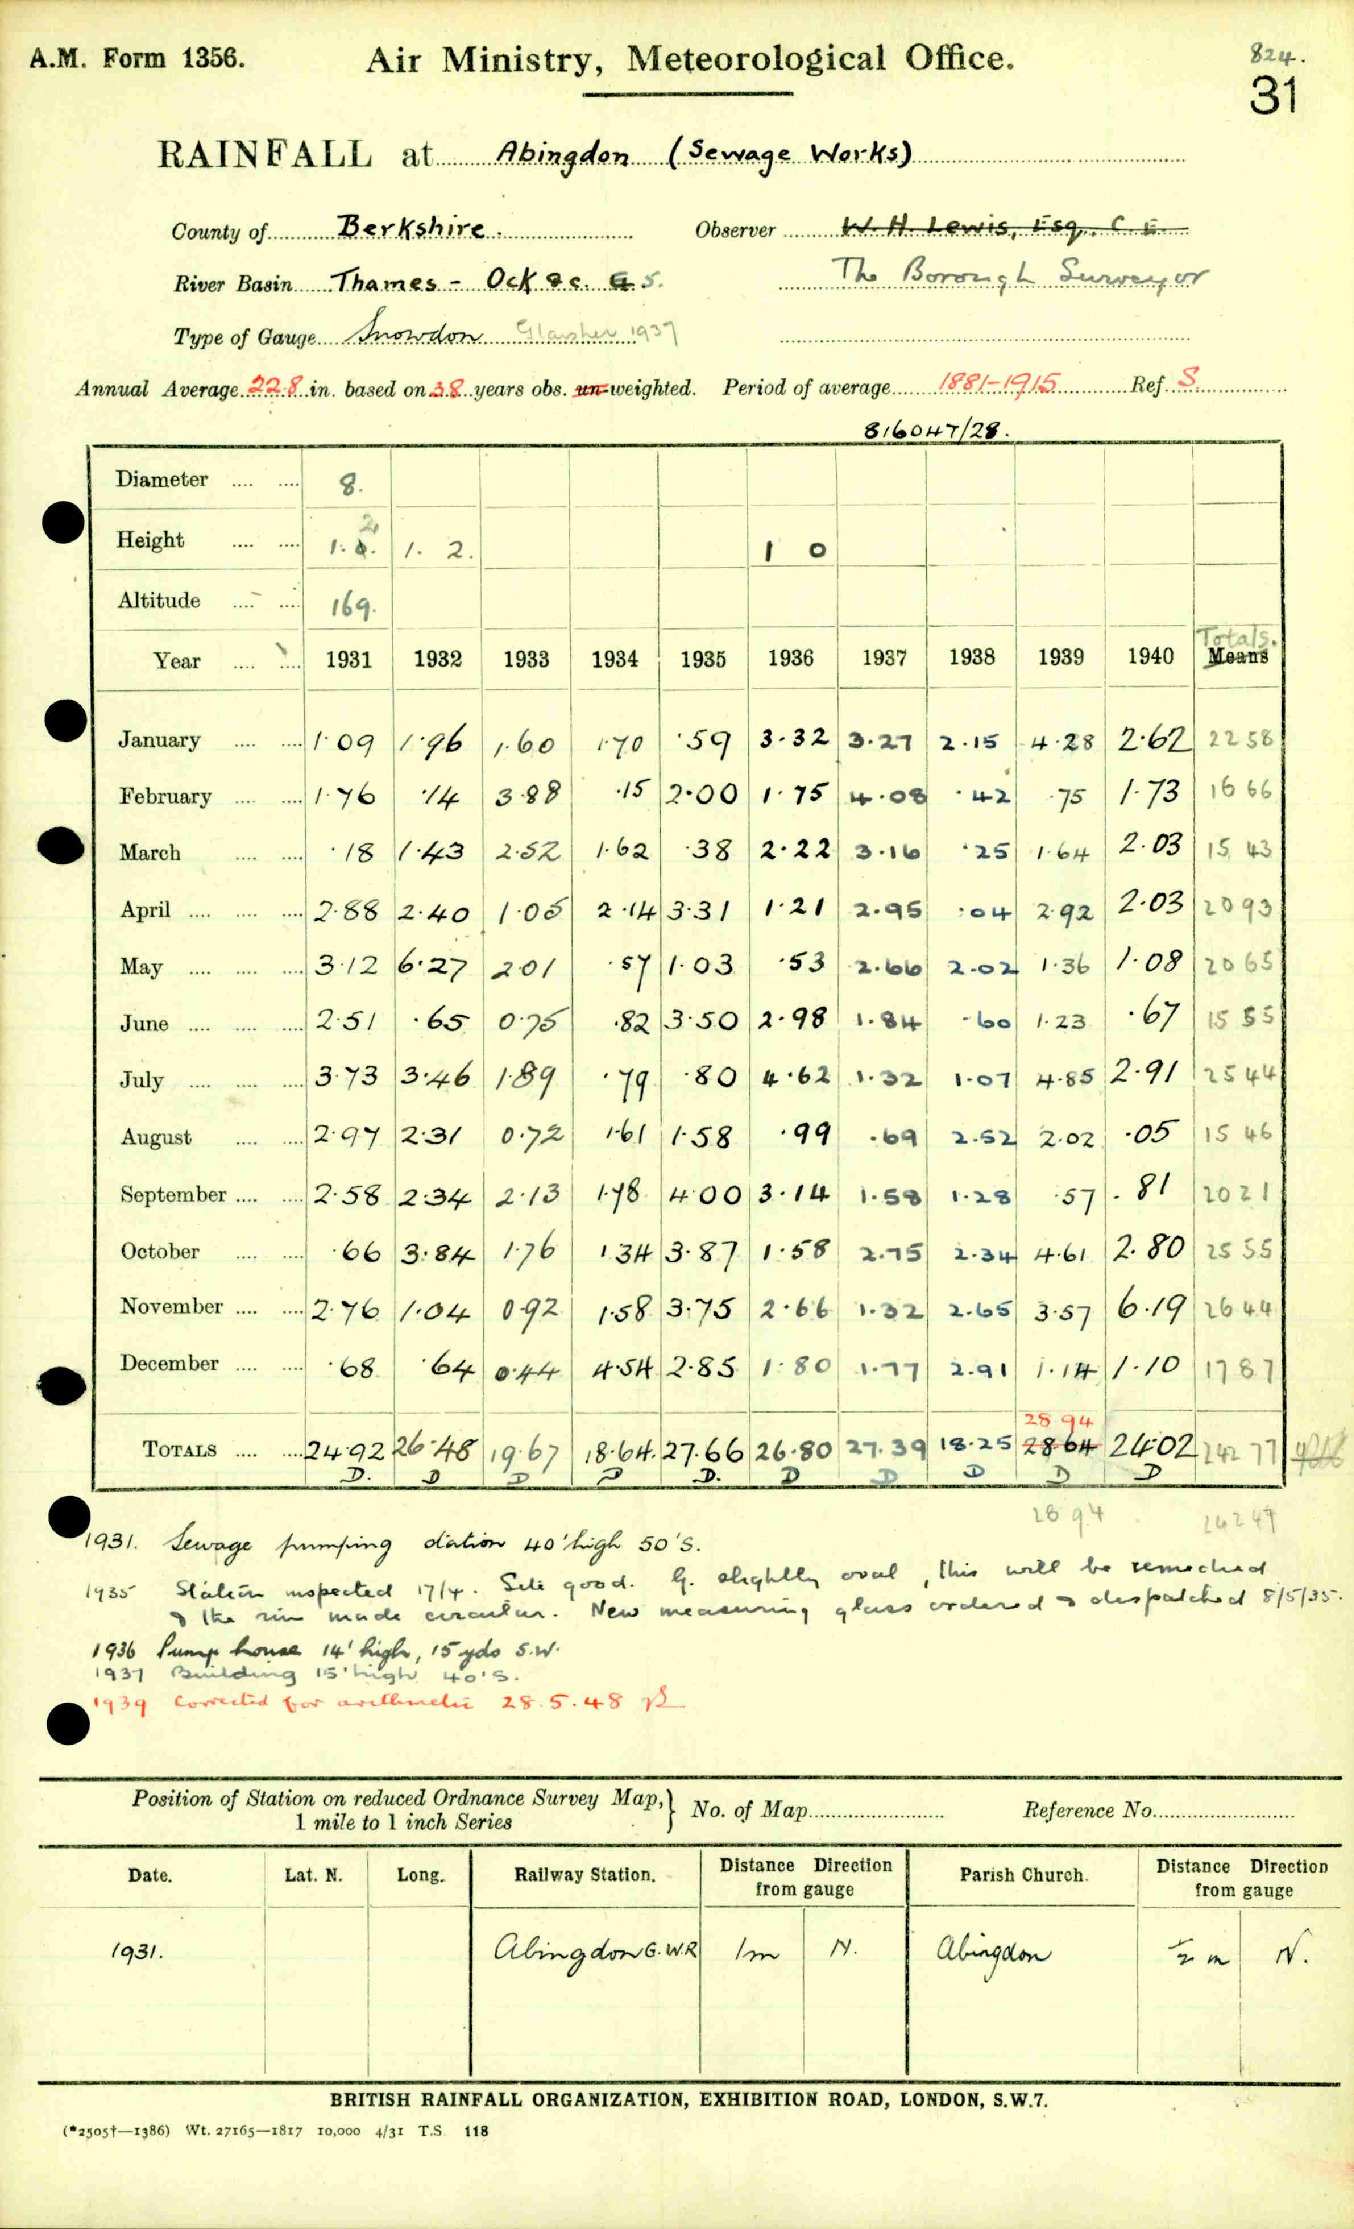 A.M. Form 1356.
Air Ministry, Meteorological Office.
824.
31
RAINFALL at Abingdon (Sewage Works)
County of Berkshire. Observer W. H. Lewis, Esq., C. E.
River Basin Thames - Ock &c. G 5. The Borough Surveyor
Type of Gauge Snowdon Glaisher 1937
Annual Average 22.8 in. based on 38 years obs. un-weighted. Period of average 1881-1915 Ref. S
816047/28.
Diameter .... .... 8.
Height .... .... 1. 2. 1. 2. 1 0
Altitude .... .... 169.
Totals.
Year .... .... 1931 1932 1933 1934 1935 1936 1937 1938 1939 1940 Means
January .... .... 1.09 1.96 1.60 1.70 .59 3.32 3.27 2.15 4.28 2.62 22 58
February .... .... 1.76 .14 3.88 .15 2.00 1.75 4.08 .42 .75 1.73 16 66
March .... .... .18 1.43 2.52 1.62 .38 2.22 3.16 .25 1.64 2.03 15 43
April .... .... .... 2.88 2.40 1.05 2.14 3.31 1.21 2.95 .04 2.92 2.03 20 93
May .... .... .... 3.12 6.27 2.01 .57 1.03 .53 2.66 2.02 1.36 1.08 20 65
June .... .... .... 2.51 .65 0.75 .82 3.50 2.98 1.84 .60 1.23 .67 15 55
July .... .... .... 3.73 3.46 1.89 .79 .80 4.62 1.32 1.07 4.85 2.91 25 44
August .... .... 2.97 2.31 0.72 1.61 1.58 .99 .69 2.52 2.02 .05 15 46
September .... .... 2.58 2.34 2.13 1.78 4.00 3.14 1.58 1.28 .57 .81 20 21
October .... .... .66 3.84 1.76 1.34 3.87 1.58 2.75 2.34 4.61 2.80 25 55
November .... .... 2.76 1.04 0.92 1.58 3.75 2.66 1.32 2.65 3.57 6.19 26 44
December .... .... .68 .64 0.44 4.54 2.85 1.80 1.77 2.91 1.14 1.10 17 87
28 94
TOTALS .... .... 24.92 26.48 19.67 18.64. 27.66 26.80 27.39 18.25 28 64 24.02 242 77
D. D D D D. D D D D D
28 94 242 47
1931. Sewage pumping station 40' high 50'S.
1935 Station inspected 17/4. Site good. G. slightly oval, this will be remedied
& the rim made circular. New measuring glass ordered & despatched 8/5/35.
1936 Pump house 14' high, 15 yds S.W.
1937 Building 15' high 40'S.
1939 Corrected for arithmetic 28.5.48
Position of Station on reduced Ordnance Survey Map, } No. of Map Reference No.
1 mile to 1 inch Series
Date. Lat. N. Long. Railway Station. Distance Direction from gauge Parish Church. Distance Direction from gauge
1931. Abingdon G.W.R 1m N. Abingdon ½ m N.
BRITISH RAINFALL ORGANIZATION, EXHIBITION ROAD, LONDON, S.W.7.
(*2505†—1386) Wt. 27165—1817 10,000 4/31 T.S. 118